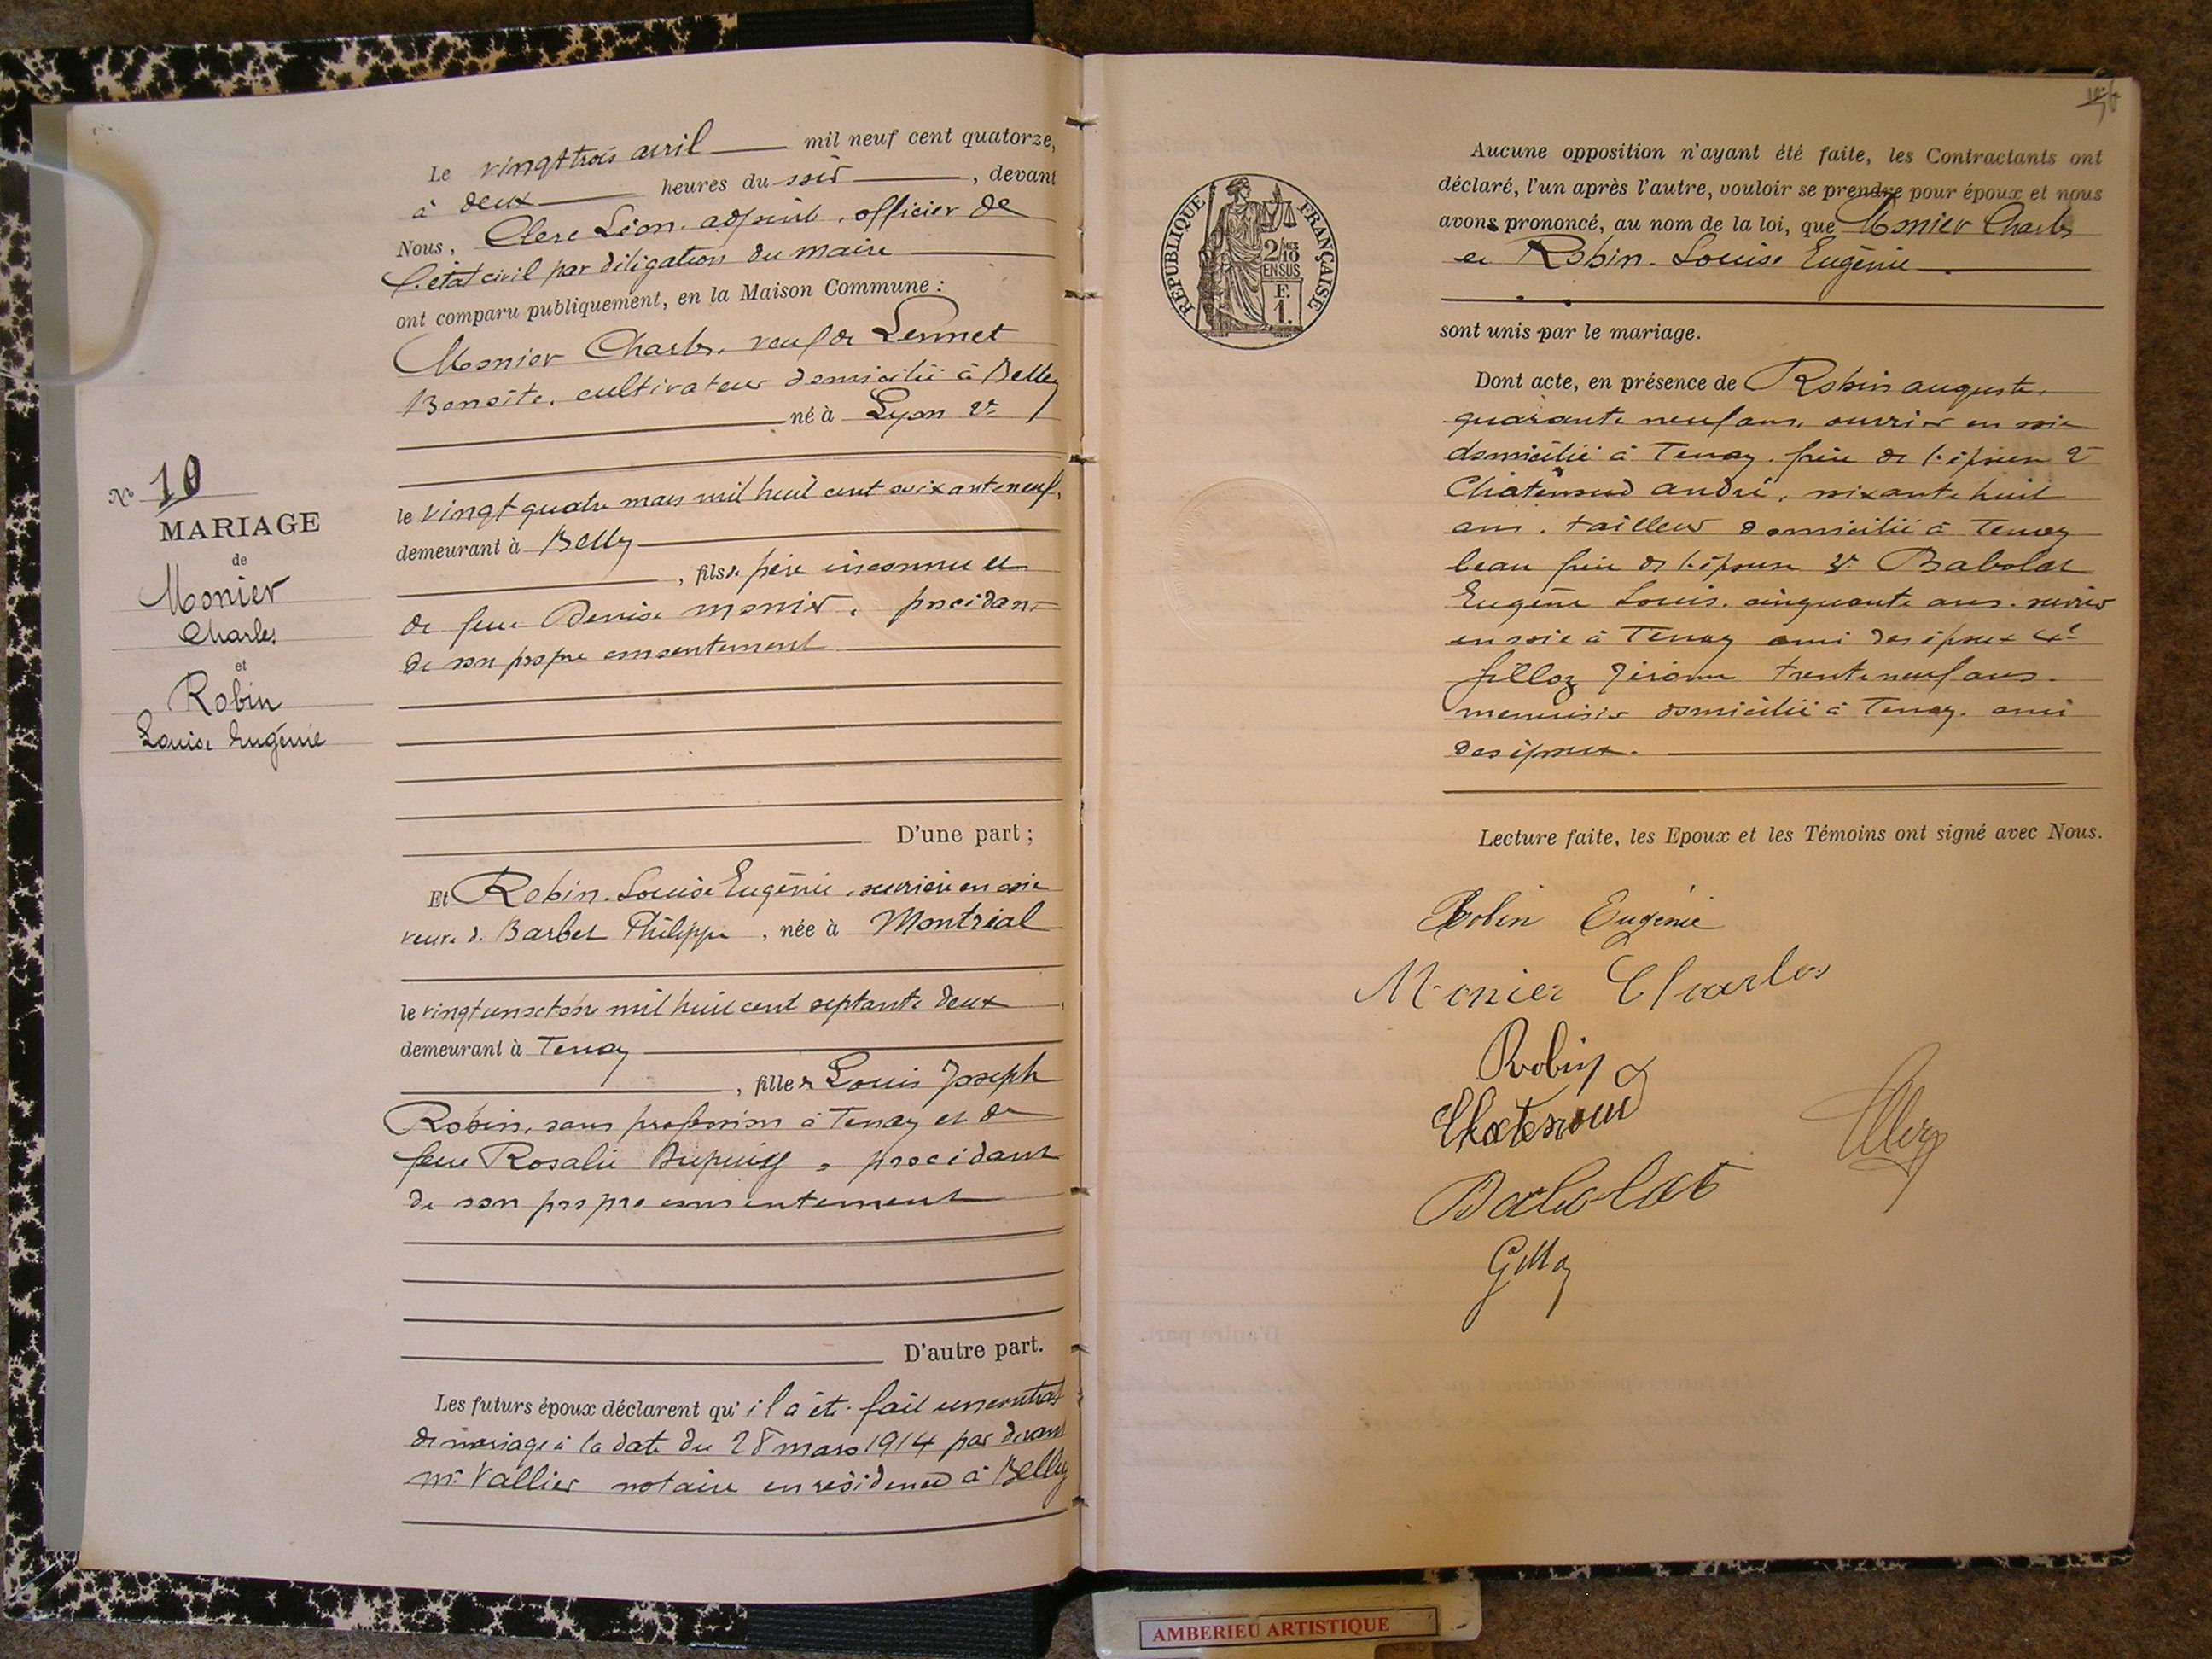 Le vingt trois avril mil neuf cent quatorze,
à deux heures du soir, devant
Nous, Clerc Léon adjoint, officier de
l'état civil par déligation du maire
ont comparu publiquement, en la Maison Commune :
Monier Charles, veuf de
Benoîte, cultivateur domicilié à Belley
né à Lyon 2e
le vingt quatre mars mil huit cent soixante neuf,
demeurant à Belley
, fils de père inconnu et
de feue Denise Monier, procédant
de son propre consentement
No 10
MARIAGE
de
Monier
Charles
et
Robin
Louise Eugénie
D'une part ;
Et Robin Louise Eugénie, ouvrière en soie
veuve de Barbet Philippe, née à Montréal
le vingt un octobre mil huit cent septante deux,
demeurant à Tenay
, fille de Louis Joseph
Robin, sans profession à Tenay et de
feue Rosalie Dupuis, procédant
de son propre consentement
D'autre part.
Les futurs époux déclarent qu'il a été fait un contrat
de mariage à la date du 28 mars 1914 par devant
Me Vallier notaire en résidence à Belley
Aucune opposition n'ayant été faite, les Contractants ont
déclaré, l'un après l'autre, vouloir se prendre pour époux et nous
avons prononcé, au nom de la loi, que Monier Charles
et Robin Louise Eugénie
sont unis par le mariage.
Dont acte, en présence de Robin auguste,
quarante neuf ans, ouvrier en soie
domicilié à Tenay, frère de l'épouse 2e
andré, soixante huit
ans, tailleur domicilié à Tenay
beau frère de l'épouse 3e Babolat
Eugène Louis, cinquante ans, ouvrier
en soie à Tenay ami des époux 4e
Jérôme trente neuf ans
menuisier domicilié à Tenay, ami
des époux.
Lecture faite, les Epoux et les Témoins ont signé avec Nous.
Robin Eugénie
Monier Charles
Robin
Babolat
RÉPUBLIQUE FRANÇAISE
2/10 MES
EN SUS
F.
1.
AMBERIEU ARTISTIQUE